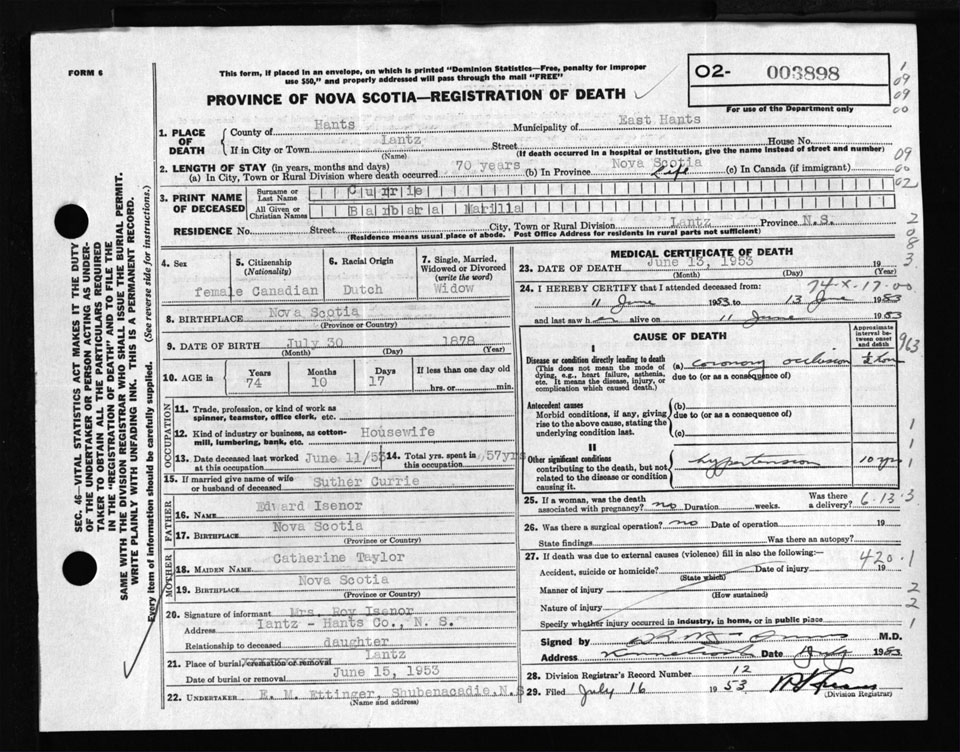 FORM 6
This form, if placed in an envelope, on which is printed "Dominion Statistics—Free, penalty for improper
use $50," and properly addressed will pass through the mail "FREE"
02- 003898
For use of the Department only
PROVINCE OF NOVA SCOTIA—REGISTRATION OF DEATH
1. PLACE OF DEATH
County of Hants Municipality of East Hants
If in City or Town Lantz Street House No.
(Name) (If death occurred in a hospital or institution, give the name instead of street and number)
2. LENGTH OF STAY (in years, months and days)
(a) In City, Town or Rural Division where death occurred 70 years (b) In Province Nova Scotia Life (c) In Canada (if immigrant)
3. PRINT NAME OF DECEASED
Surname or Last Name Currie
All Given or Christian Names Barbara Marilla
RESIDENCE No. Street City, Town or Rural Division Lantz Province N.S.
(Residence means usual place of abode. Post Office Address for residents in rural parts not sufficient)
4. Sex female
5. Citizenship (Nationality) Canadian
6. Racial Origin Dutch
7. Single, Married, Widowed or Divorced (write the word) Widow
8. BIRTHPLACE Nova Scotia
(Province or Country)
9. DATE OF BIRTH July 30 1878
(Month) (Day) (Year)
10. AGE in Years 74 Months 10 Days 17 If less than one day old hrs. or min.
OCCUPATION
11. Trade, profession, or kind of work as spinner, teamster, office clerk, etc.
12. Kind of industry or business, as cotton-mill, lumbering, bank, etc. Housewife
13. Date deceased last worked at this occupation June 11/53
14. Total yrs. spent in this occupation 57yrs
15. If married give name of wife or husband of deceased Suther Currie
FATHER
16. NAME Edward Isenor
17. BIRTHPLACE Nova Scotia
(Province or Country)
MOTHER
18. MAIDEN NAME Catherine Taylor
19. BIRTHPLACE Nova Scotia
(Province or Country)
20. Signature of informant Mrs. Roy Isenor
Address Lantz - Hants Co., N. S.
Relationship to deceased daughter
21. Place of burial, cremation or removal Lantz
Date of burial or removal June 15, 1953
22. UNDERTAKER E. M. Ettinger, Shubenacadie, N.S
(Name and Address)
MEDICAL CERTIFICATE OF DEATH
23. DATE OF DEATH June 13, 1953 19
(Month) (Day) (Year)
74-X-17-00
24. I HEREBY CERTIFY that I attended deceased from:
11 June 1953 to 13 June 1953
and last saw her alive on 11 June 1953
CAUSE OF DEATH
Approximate interval between onset and death
I
Disease or condition directly leading to death
(This does not mean the mode of dying, e.g., heart failure, asthenia, etc. It means the disease, injury, or complication which caused death.)
(a) coronary occlusion
due to (or as a consequence of)
Antecedent causes
Morbid conditions, if any, giving rise to the above cause, stating the underlying condition last.
(b)
due to (or as a consequence of)
(c)
II
Other significant conditions
contributing to the death, but not related to the disease or condition causing it.
hypertension 10 yrs
25. If a woman, was the death associated with pregnancy? no Duration weeks. Was there a delivery?
6-13-3
26. Was there a surgical operation? no Date of operation 19
State findings Was there an autopsy?
27. If death was due to external causes (violence) fill in also the following:—
420.1
Accident, suicide or homicide? Date of injury 19
(State which)
Manner of injury
(How sustained)
Nature of injury
Specify whether injury occurred in industry, in home, or in public place
Signed by M.D.
Address Date July 1953
28. Division Registrar's Record Number 12
29. Filed July 16 1953
(Division Registrar)
SEC. 46—VITAL STATISTICS ACT MAKES IT THE DUTY
OF THE UNDERTAKER OR PERSON ACTING AS UNDER-
TAKER TO OBTAIN ALL THE PARTICULARS REQUIRED
IN THE "REGISTRATION OF DEATH" AND TO FILE THE
SAME WITH THE DIVISION REGISTRAR WHO SHALL ISSUE THE BURIAL PERMIT.
WRITE PLAINLY WITH UNFADING INK. THIS IS A PERMANENT RECORD.
Every item of information should be carefully supplied. (See reverse side for instructions.)
1
09
09
00
09
00
02
2
0
8
3
963
1
1
1
2
2
1